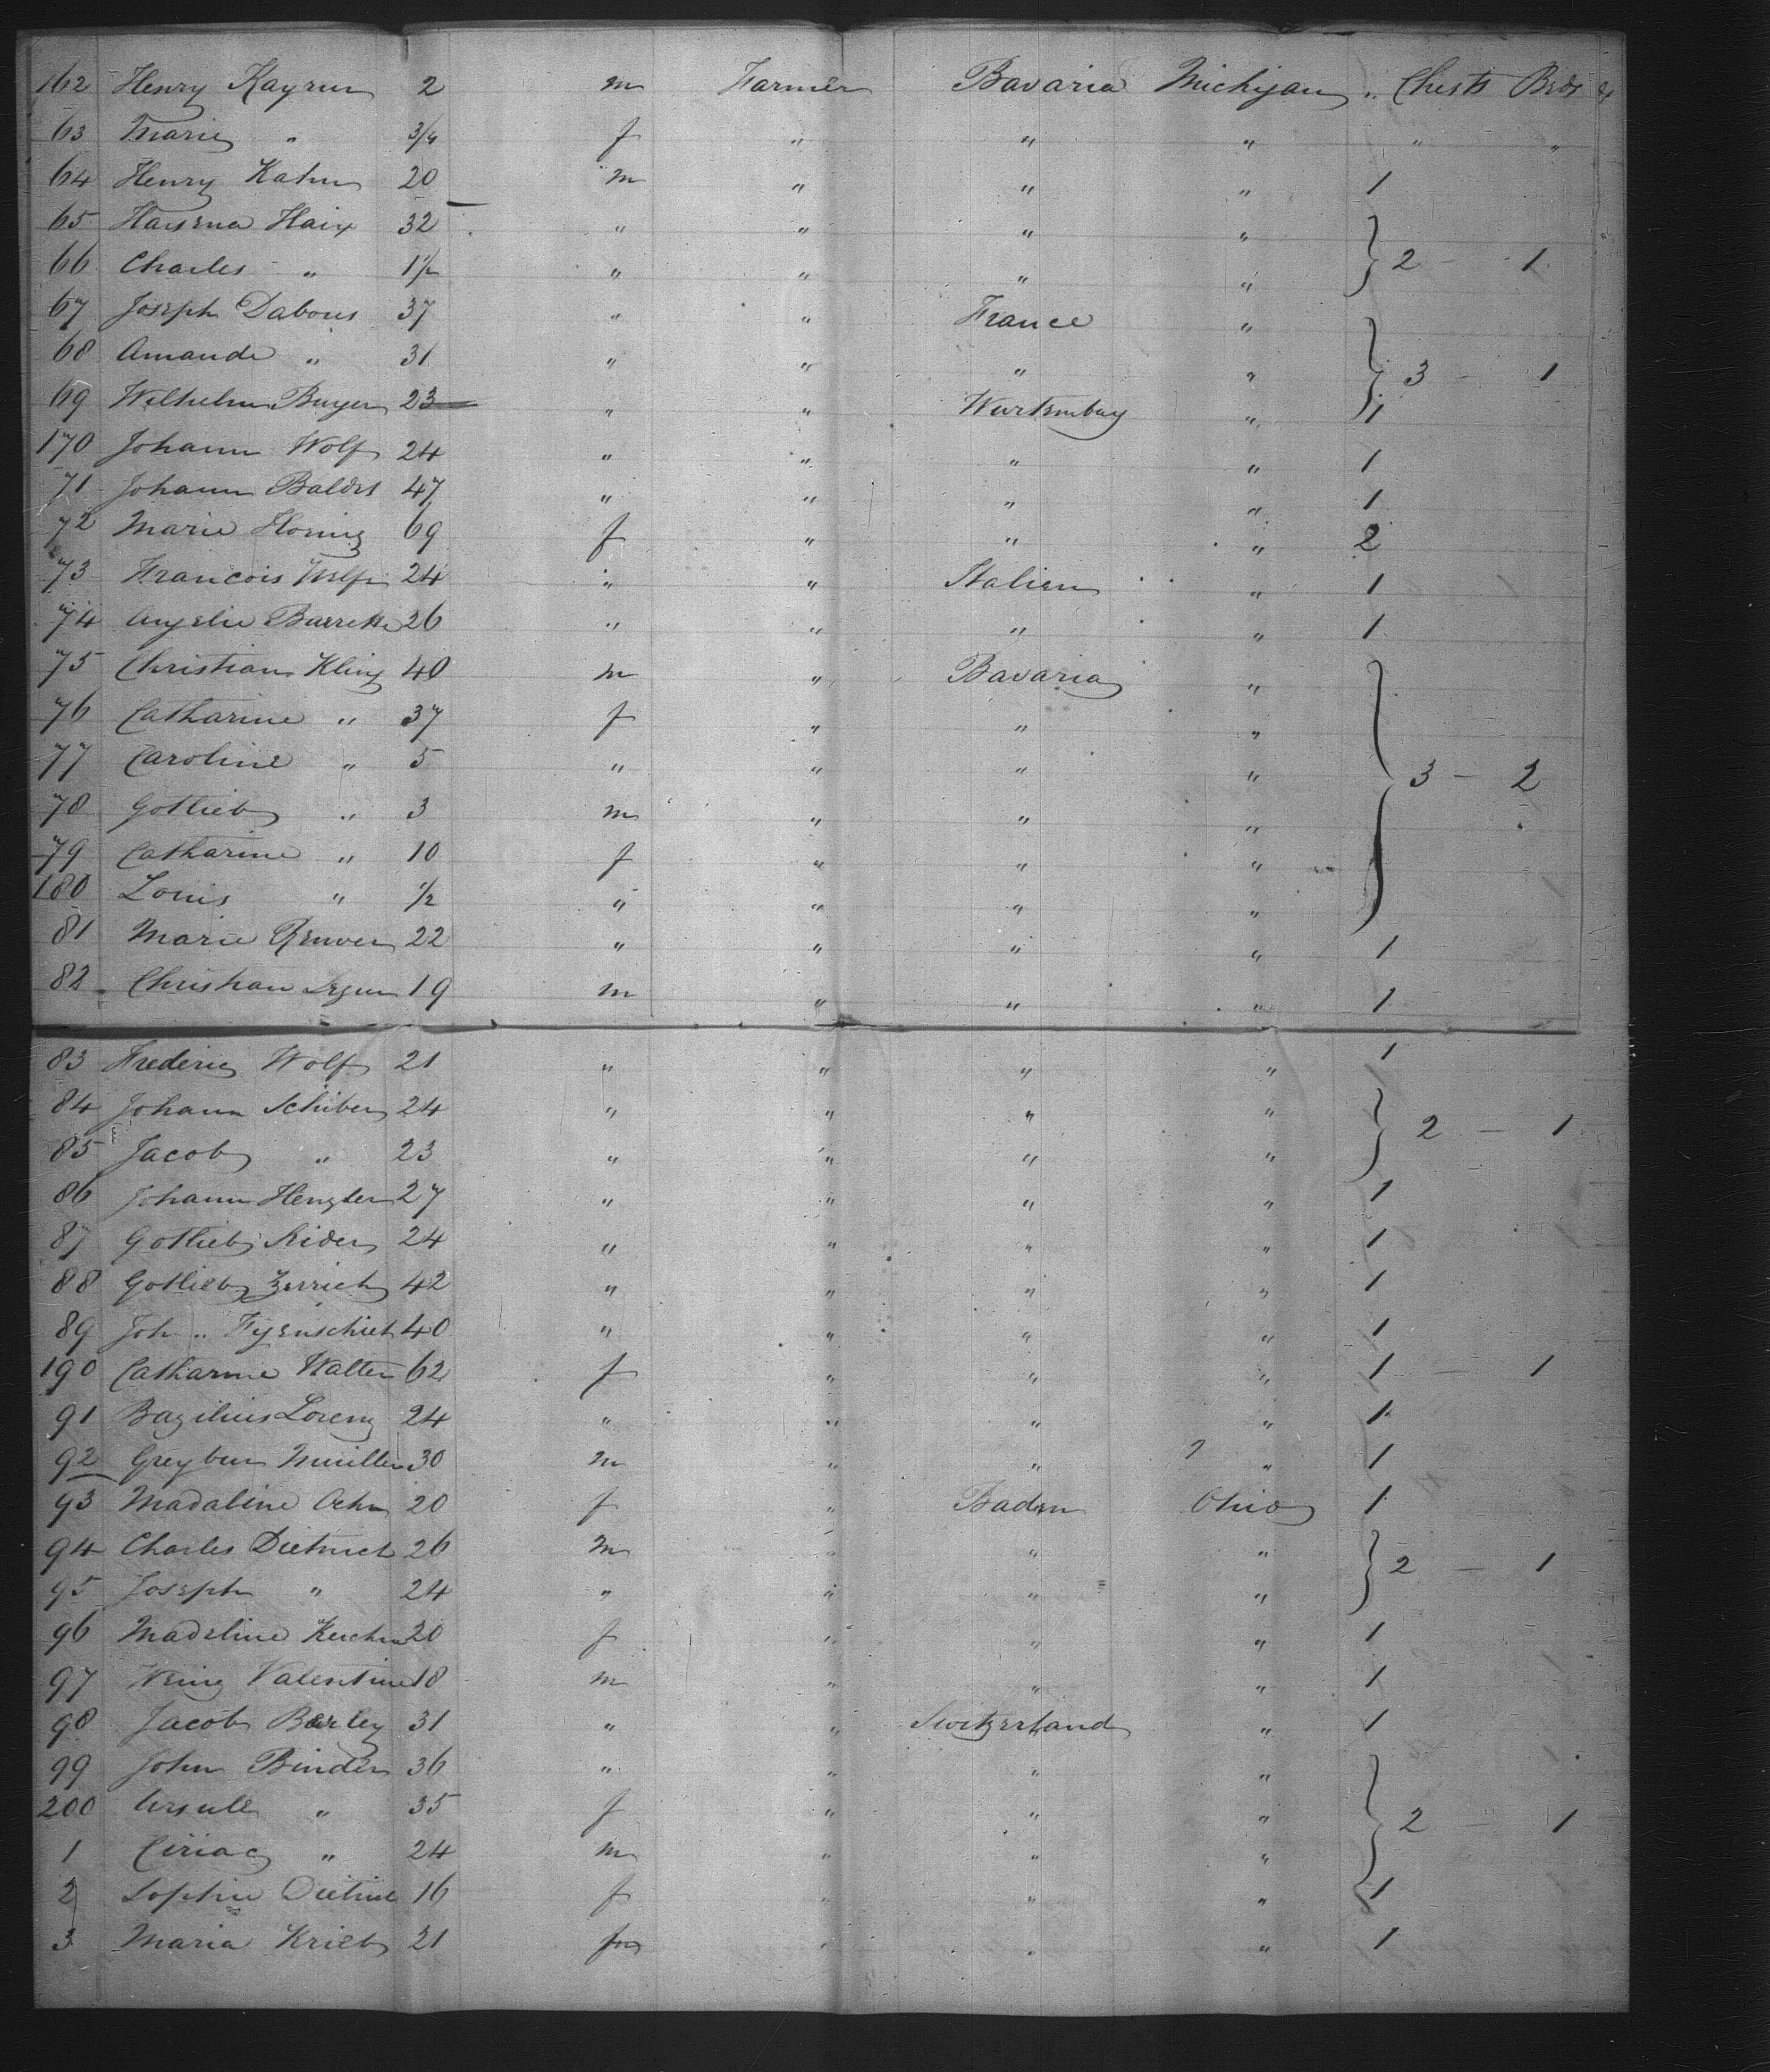 162 Henry Kayrun 2 m Farmer Bavaria Michigan .. Chests Beds &
63 Marie " 3/4 f " " " " "
64 Henry Kahn 20 m " " " 1
65 Haisrna Haix 32 " " " "
66 Charles " 1½ " " " " 2 – 1
67 Joseph Dabous 37 " " France "
68 Amande " 31 " " " " 3 – 1
69 Wilhelm Buyer 23 " " Wurtemburg " 1
170 Johann Wolf 24 " " " " 1
71 Johann Baldes 47 " " " " 1
72 Marie Horing 69 f " " " 2
73 Francois 24 " " Italien " 1
74 Angelie Barrette 26 " " " " 1
75 Christian Kling 40 m " Bavaria "
76 Catharine " 37 f " " "
77 Caroline " 5 " " " " 3 – 2
78 Gotlieb " 3 m " " "
79 Catharine " 10 f " " "
180 Louis " ½ " " " "
81 Marie 22 " " " " 1
82 Christian 19 m " " " 1
83 Frederic Wolf 21 " " " " 1
84 Johann Schiber 24 " " " " 2 – 1
85 Jacob " 23 " " " "
86 Johann Hengler 27 " " " " 1
87 Gotlieb Rider 24 " " " " 1
88 Gotlieb Zerrich 42 " " " " 1
89 Joh .. Fyenschiet 40 " " " " 1
190 Catharine Walter 62 f " " " 1 – 1
91 Bazilius Lorenz 24 " " " " 1
92 Muiller 30 m " " " 1
93 Madaline Ochs 20 f " Baden Ohio 1
94 Charles Dietrich 26 m " " " 2 – 1
95 Joseph " 24 " " " "
96 Madeline 20 f " " " 1
97 Valentine 18 m " " " 1
98 Jacob Barley 31 " " Switzerland " 1
99 John Binder 36 " " " "
200 Ursule " 35 f " " " 2 – 1
1 Ciriac " 24 m " " "
2 Sophie Dietrich 16 f " " " 1
3 Maria Krieb 21 f " " " 1